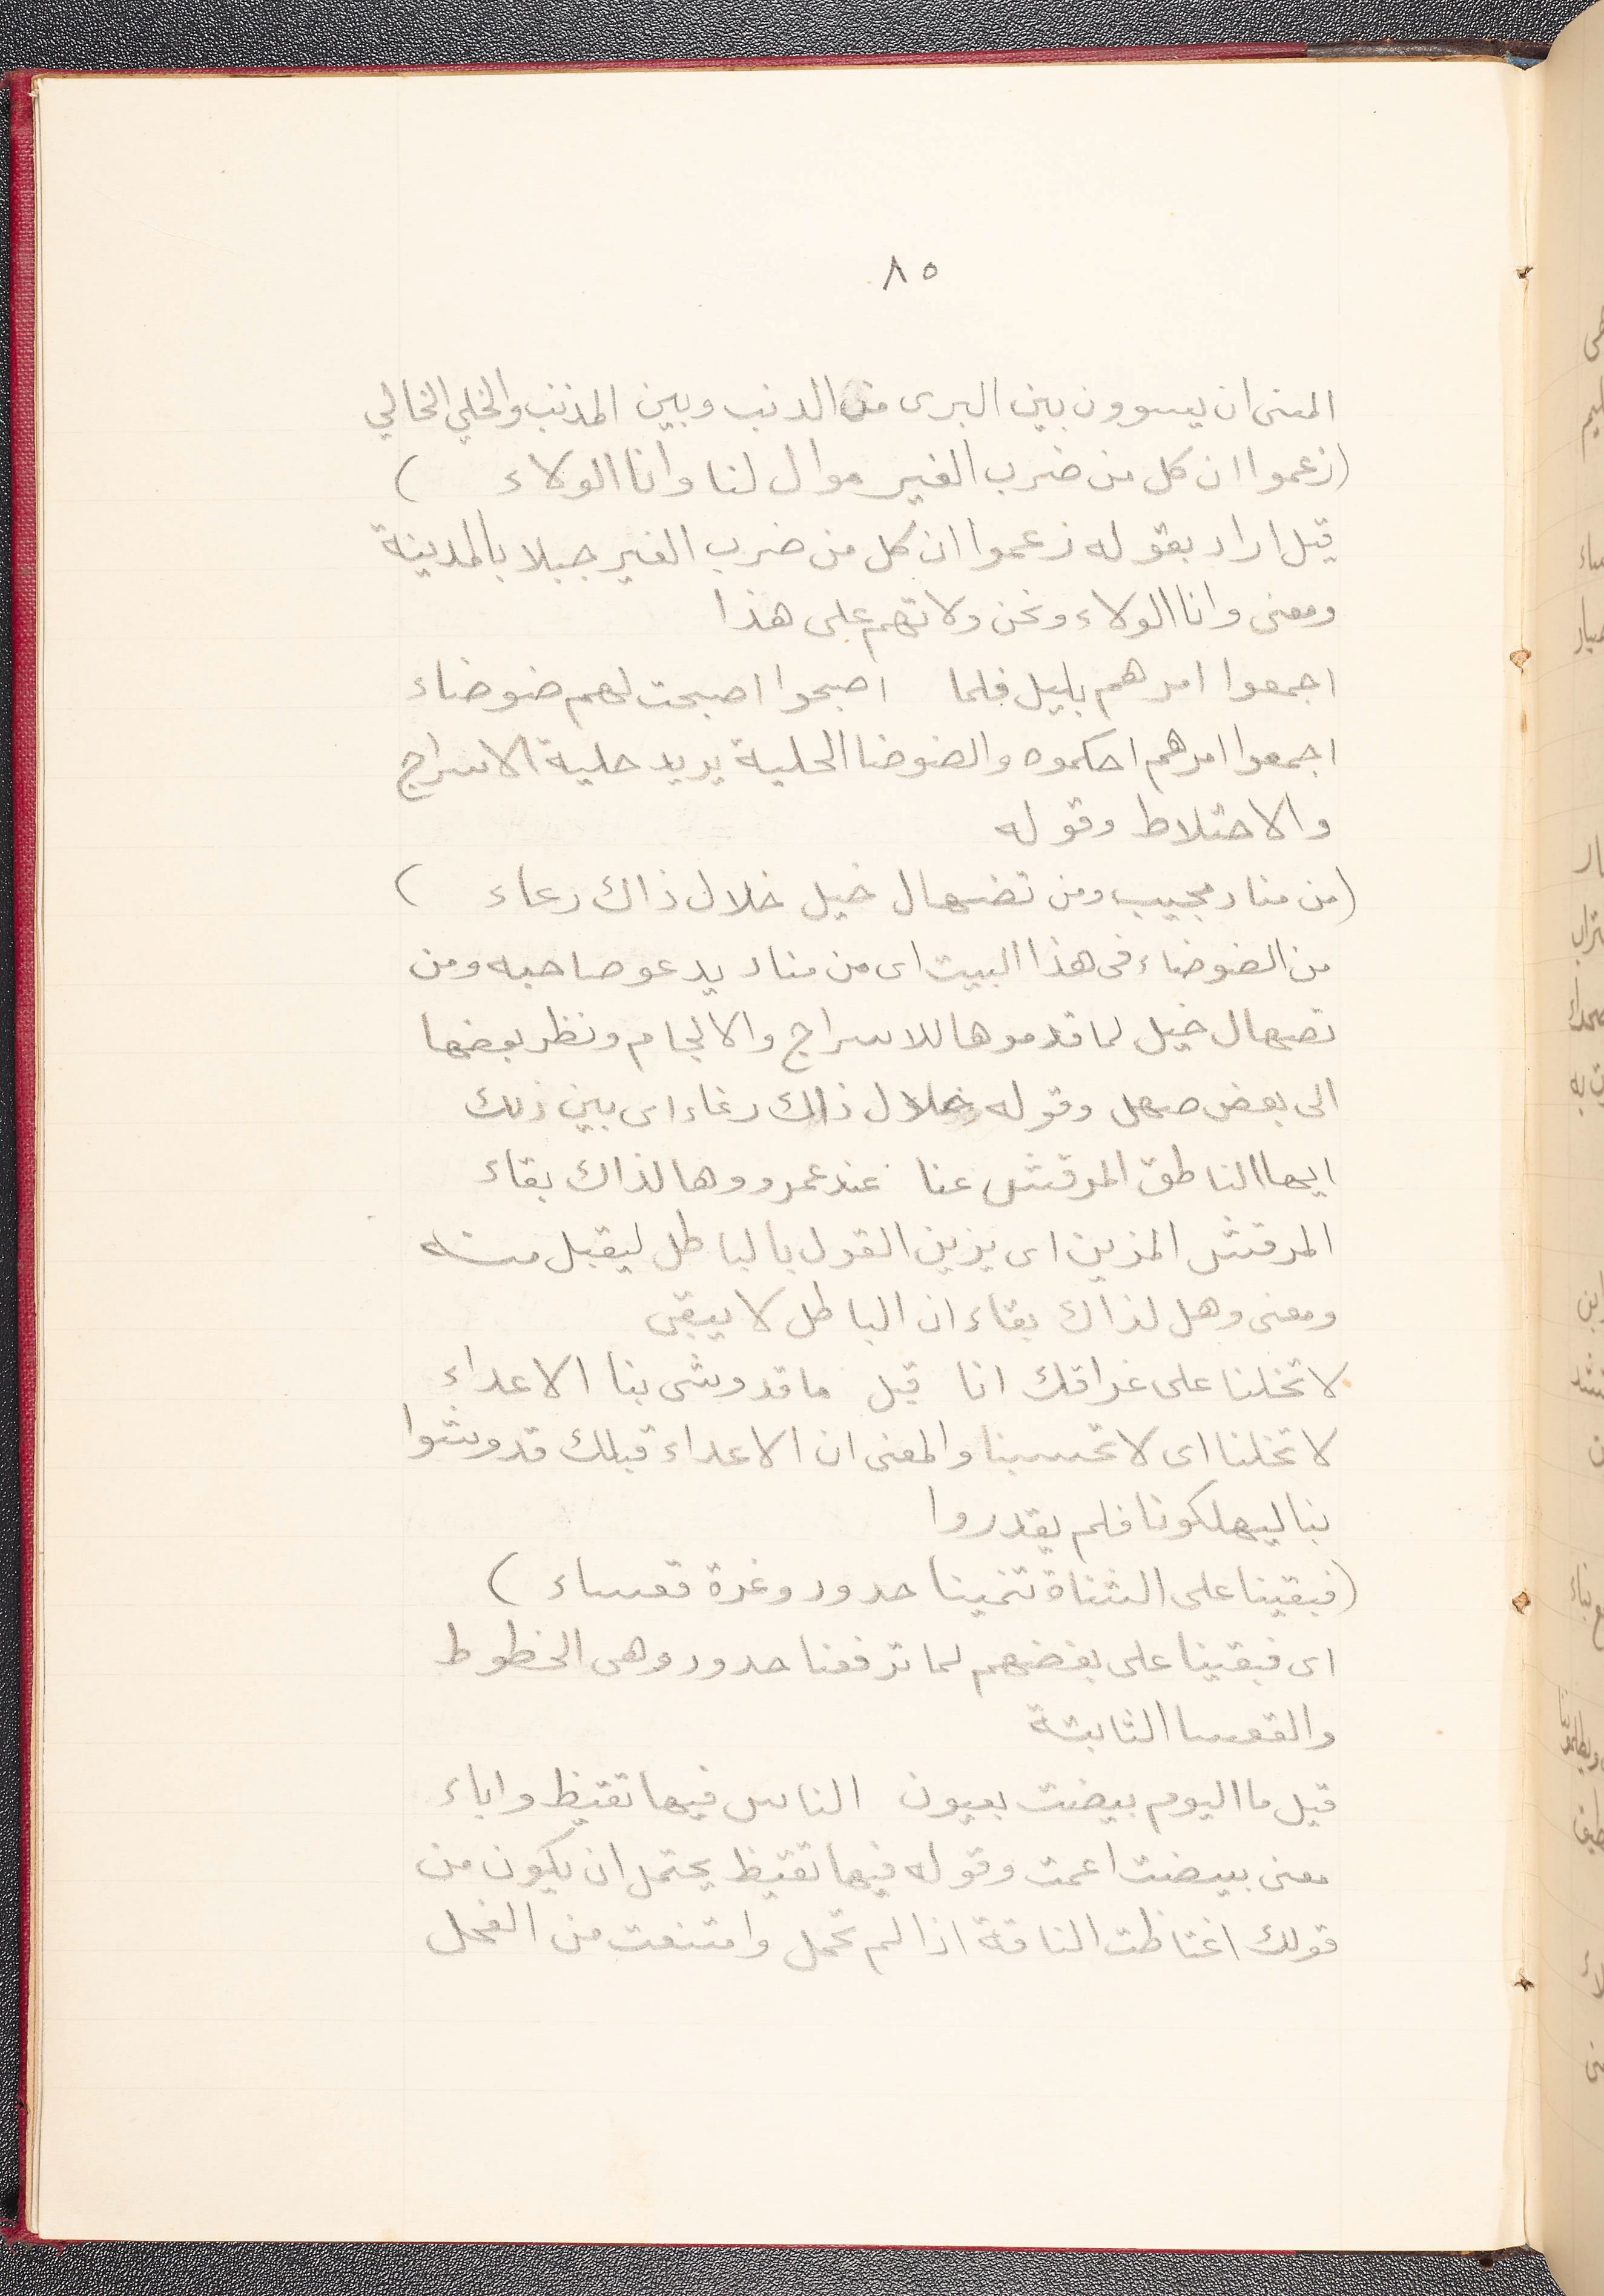 ٨٥
المعنى ان يسوون بين البرى من الدنب وبين المذنب والخلي الخالي
(زعموا ان كل من ضرب الغير موال لنا وانا الولاء )
قيل اراد بقوله زعموا ان كل من ضرب الغير جبلا بالمدينة
ومعنى وانا الولاء ونحن ولاتهم على هذا
اجمعوا امرهم بليل فلما اصبحوا اصبحت لهم ضوضاء
اجمعوا امرهم احكموه والضوضا الحلبة يريد حلبة الاسراج
والاختلاط وقوله
(من مناد مجيب ومن تضهال خيل خلال ذاك رعاء )
من الضوضاء فى هذا البيت اى من مناد يدعو صاحبه ومن
تصهال خيل لما قدموها للاسراج والالجام ونظر بعضها
الى بعض صهل وقوله خلال ذاك رغاء اى بين ذلك
ايها الناطق المرقش عنا عند عمرو وهل لذاك بقاء
المرقش المزين اى يزين القول بالباطل ليقبل منه
ومعنى وهل لذاك بقاء ان الباطل لا يبقى
لا تخلنا على غراقك انا قبل ما قد وشى بنا الاعداء
لا تخلنا اى لا تحسبنا والمعنى ان الاعداء قبلك قد وشوا
بنا ليهلكونا فلم يقدروا
(فبقينا على الشناة تنمينا حدود وغرة قعساء )
اى فبقينا على بغضهم لما ترفعنا حدود وهى الخطوط
والقعسا الثابتة
قبل ما اليوم بيضت بعيون الناس فيها تغيظ واباء
معنى بيضت اعمت وقوله فيها تغيظ يحتمل ان يكون من
قولك اغتاظت الناقة اذا لم تحمل وامتنعت من الفحل